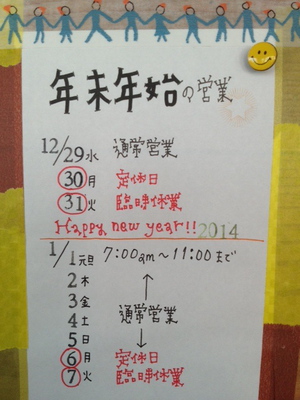 年末年始の営業
12/29水 通常営業
30月 定休日
31火 臨時休業
Happy new year!! 2014
1/1元日 7:00am～11:00まで
2木
3金
4土 通常営業
5日
6月 定休日
7火 臨時休業